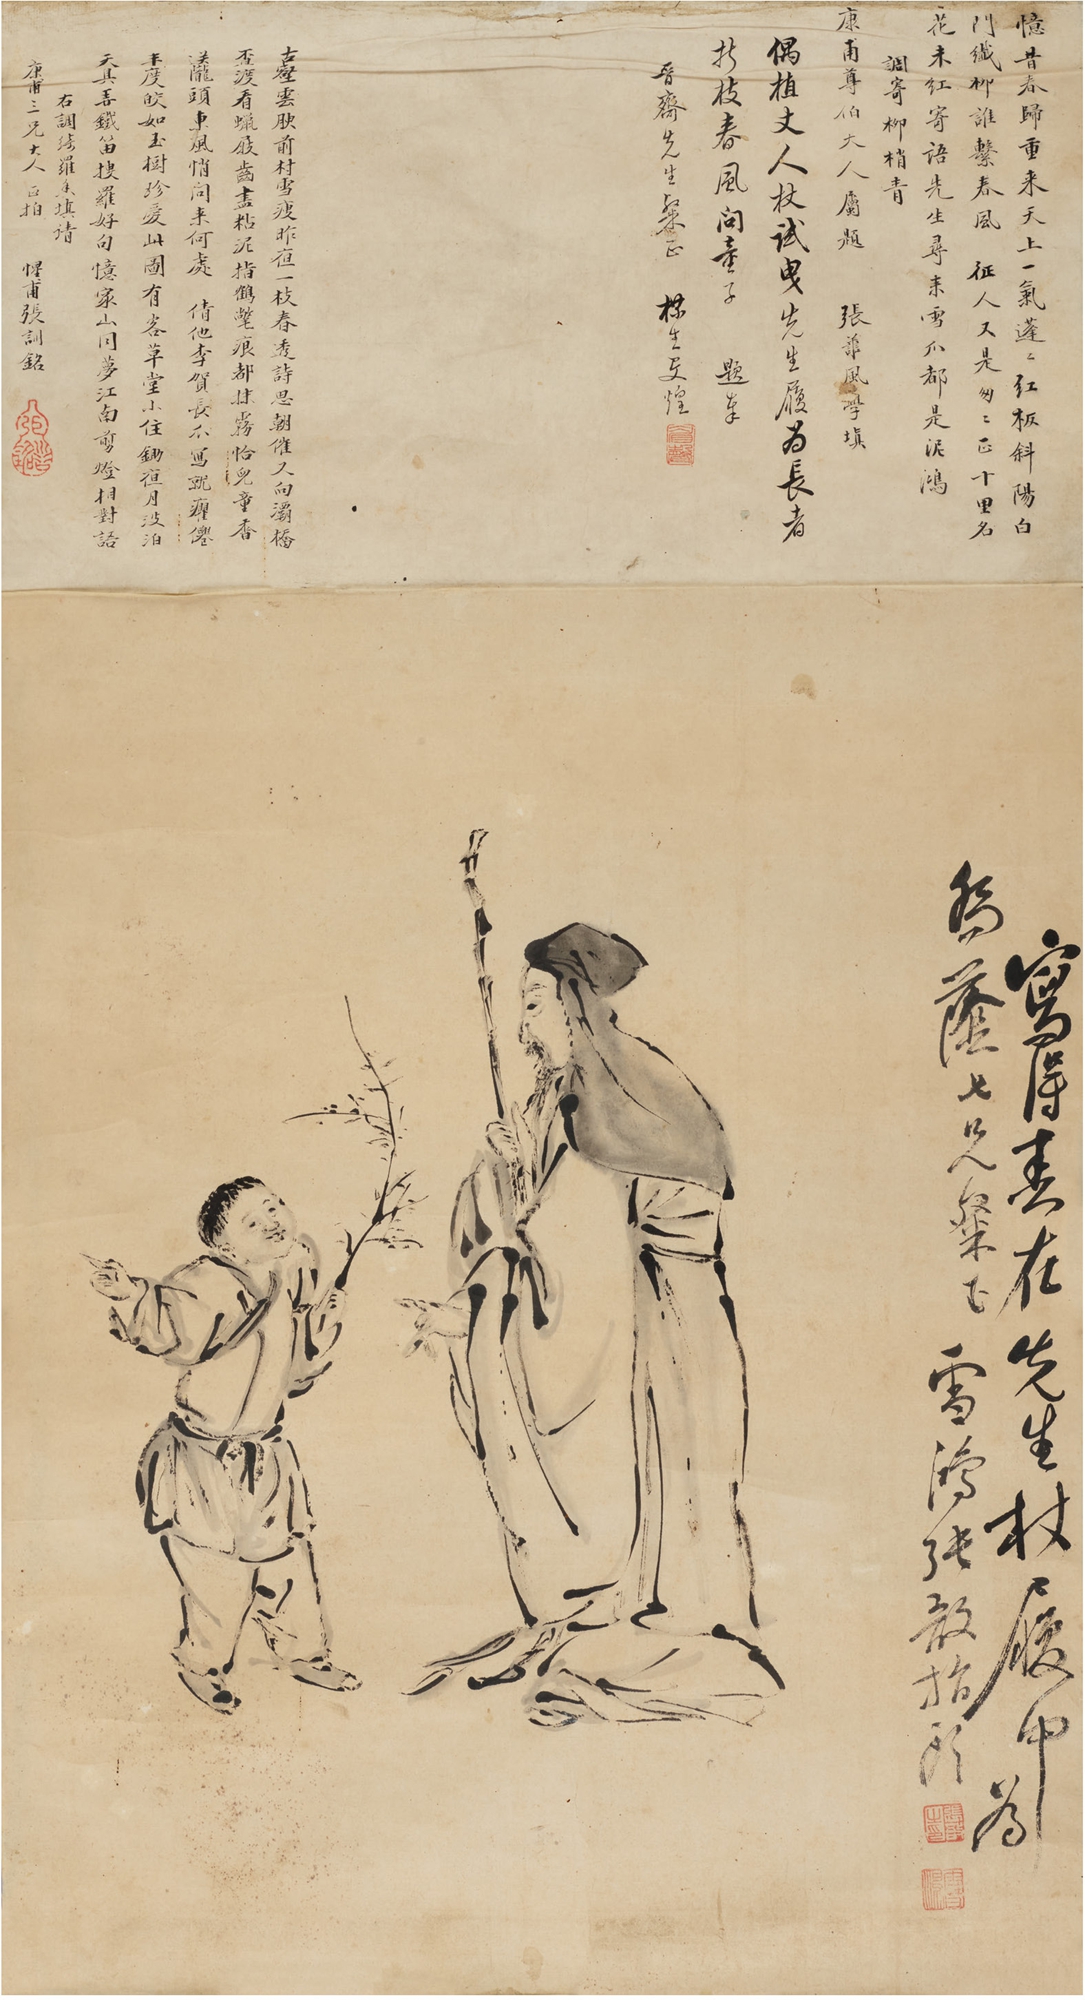 憶昔春歸重來天上一氣蓬〻紅板斜陽白
門纖柳誰繫春風　征人又是匆〻正十里名
花未紅寄語先生尋來雪爪都是泥鴻
調寄柳梢青
康甫尊伯大人屬題　張誰風學填
偶植丈人杖試曳先生履為長者
折枝春風問童子　題奉
晉齋先生粲正　楳生
古壑雲腴前村雪瘦昨夜一枝春透詩思朝催又向灞橋
盃渡看蠟屐齒盡粘泥指鶴氅痕都抹霧恰兒童香
送隴頭東風悄問來何處　倩他李賀長爪寫就癯僊
丰度皎如玉樹珍愛此圖有客草堂小住鋤夜月
天真吾鐵笛搜羅好句憶家山同夢江南剪燈相對語
右調綺羅香填請
康甫三兄大人正拍　惺甫張訓銘
寫得春在先生杖履中為
蔭七兄粲正　雪鴻張敔指頭